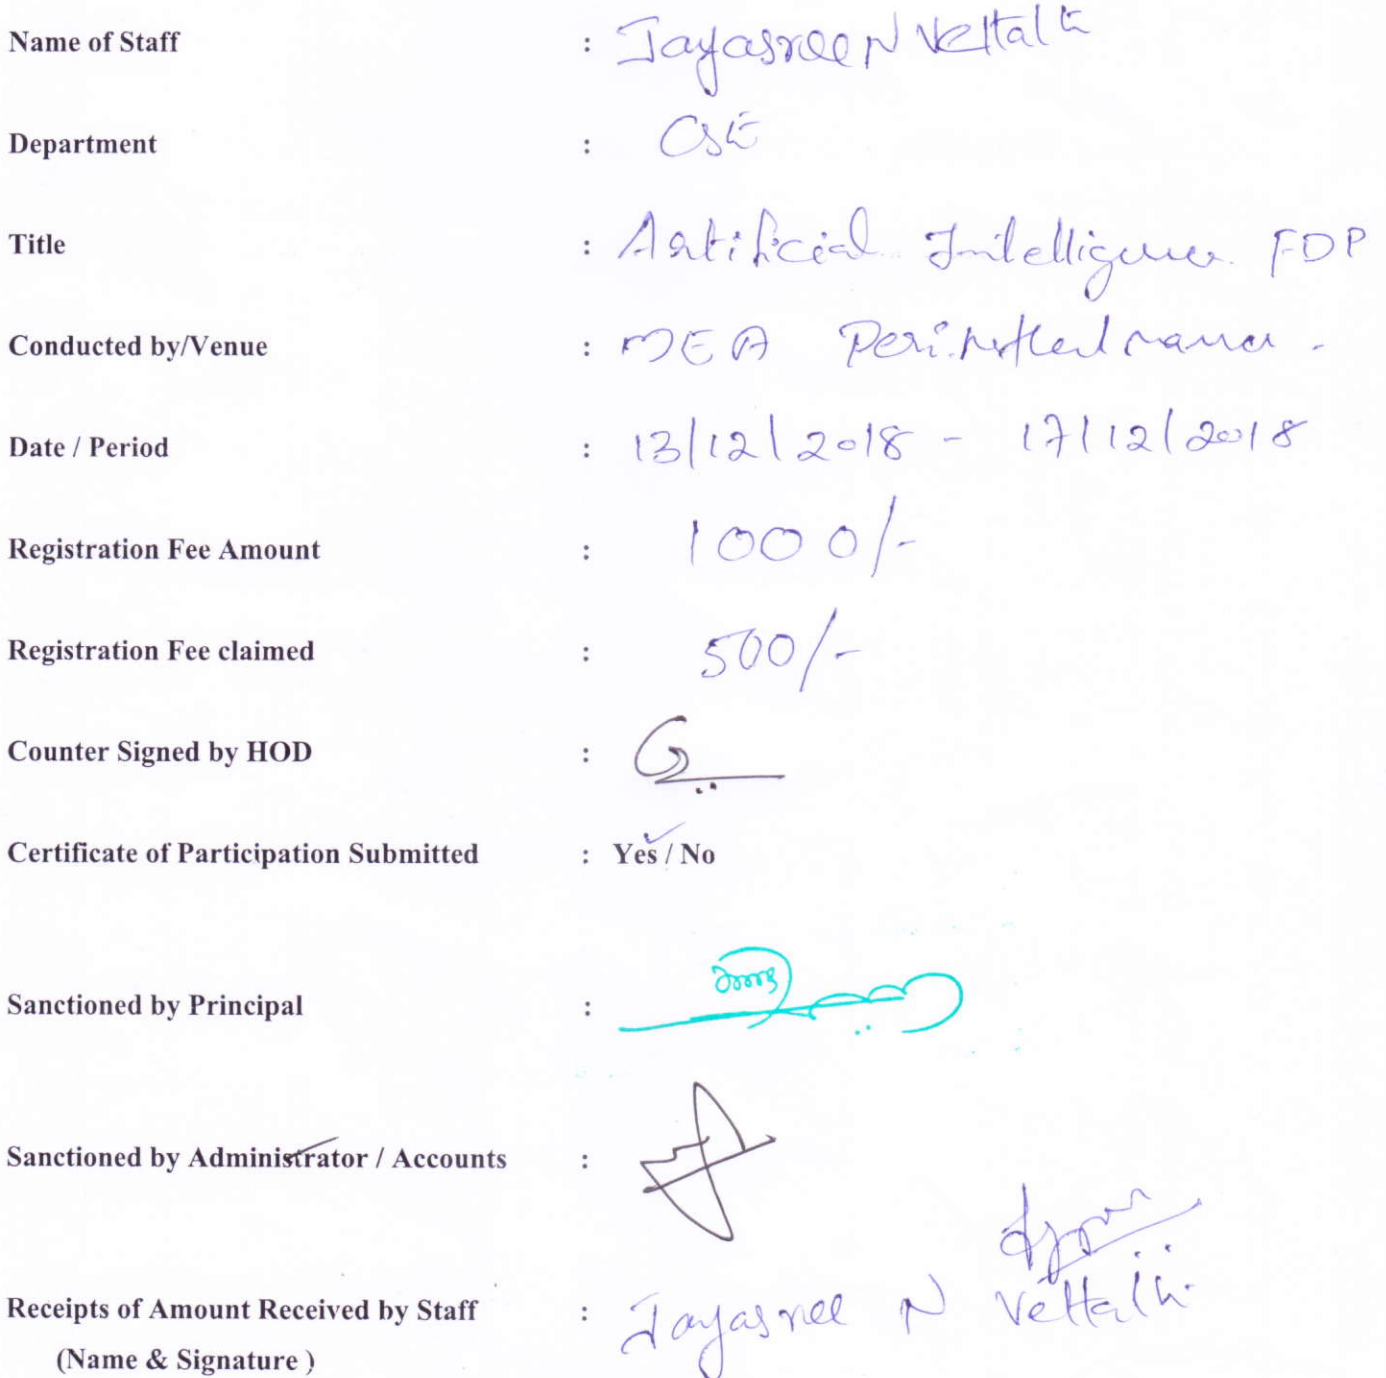 Name of Staff : Jayasree N Vettath
Department : CSE
Title : Artificial Intelligence FDP
Conducted by/Venue : MEA Perinthalmanna.
Date / Period : 13/12/2018 - 17/12/2018
Registration Fee Amount : 1000/-
Registration Fee claimed : 500/-
Counter Signed by HOD :
Certificate of Participation Submitted : Yes / No
Sanctioned by Principal :
Sanctioned by Administrator / Accounts :
Receipts of Amount Received by Staff : Jayasree N Vettath
(Name & Signature )